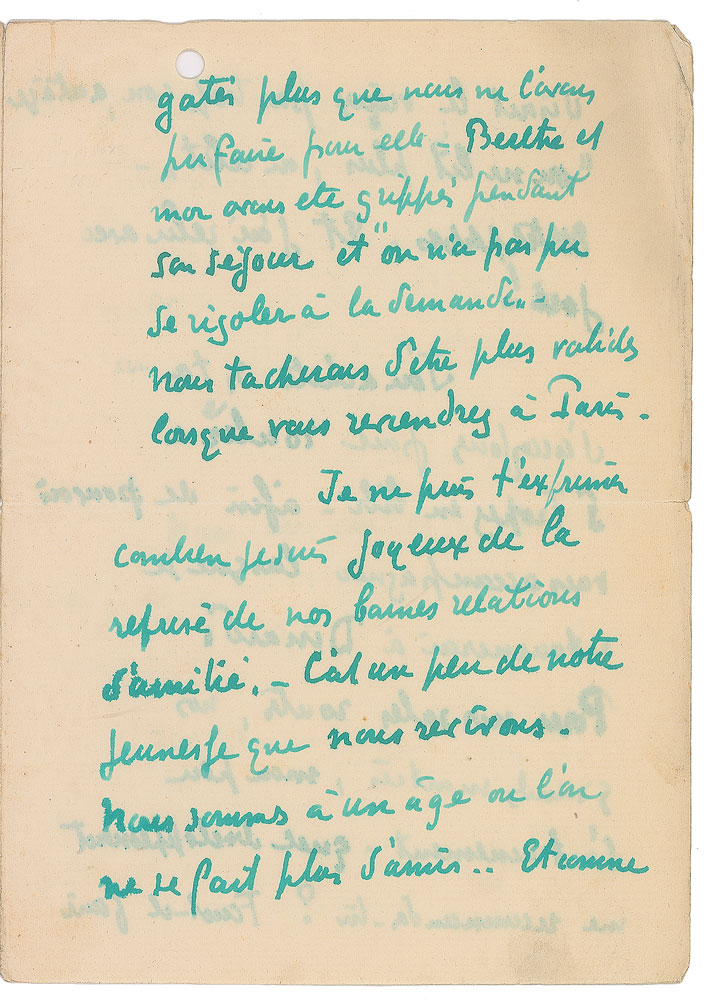 gatés plus que nous ne l'avons
pu faire pour elle – Berthe et
moi avons eté grippés pendant
son séjour et "on n'a pas pu
se rigoler à la demande" –
nous tacherons d'être plus valides
lorsque vous reviendrez à Paris –
Je ne puis t'exprimer
combien je suis joyeux de la
reprise de nos bonnes relations
d'amitié. – C'est un peu de notre
jeunesse que nous revivons.
Nous sommes à un âge ou l'on
ne se fait plus d'amis.. Et comme